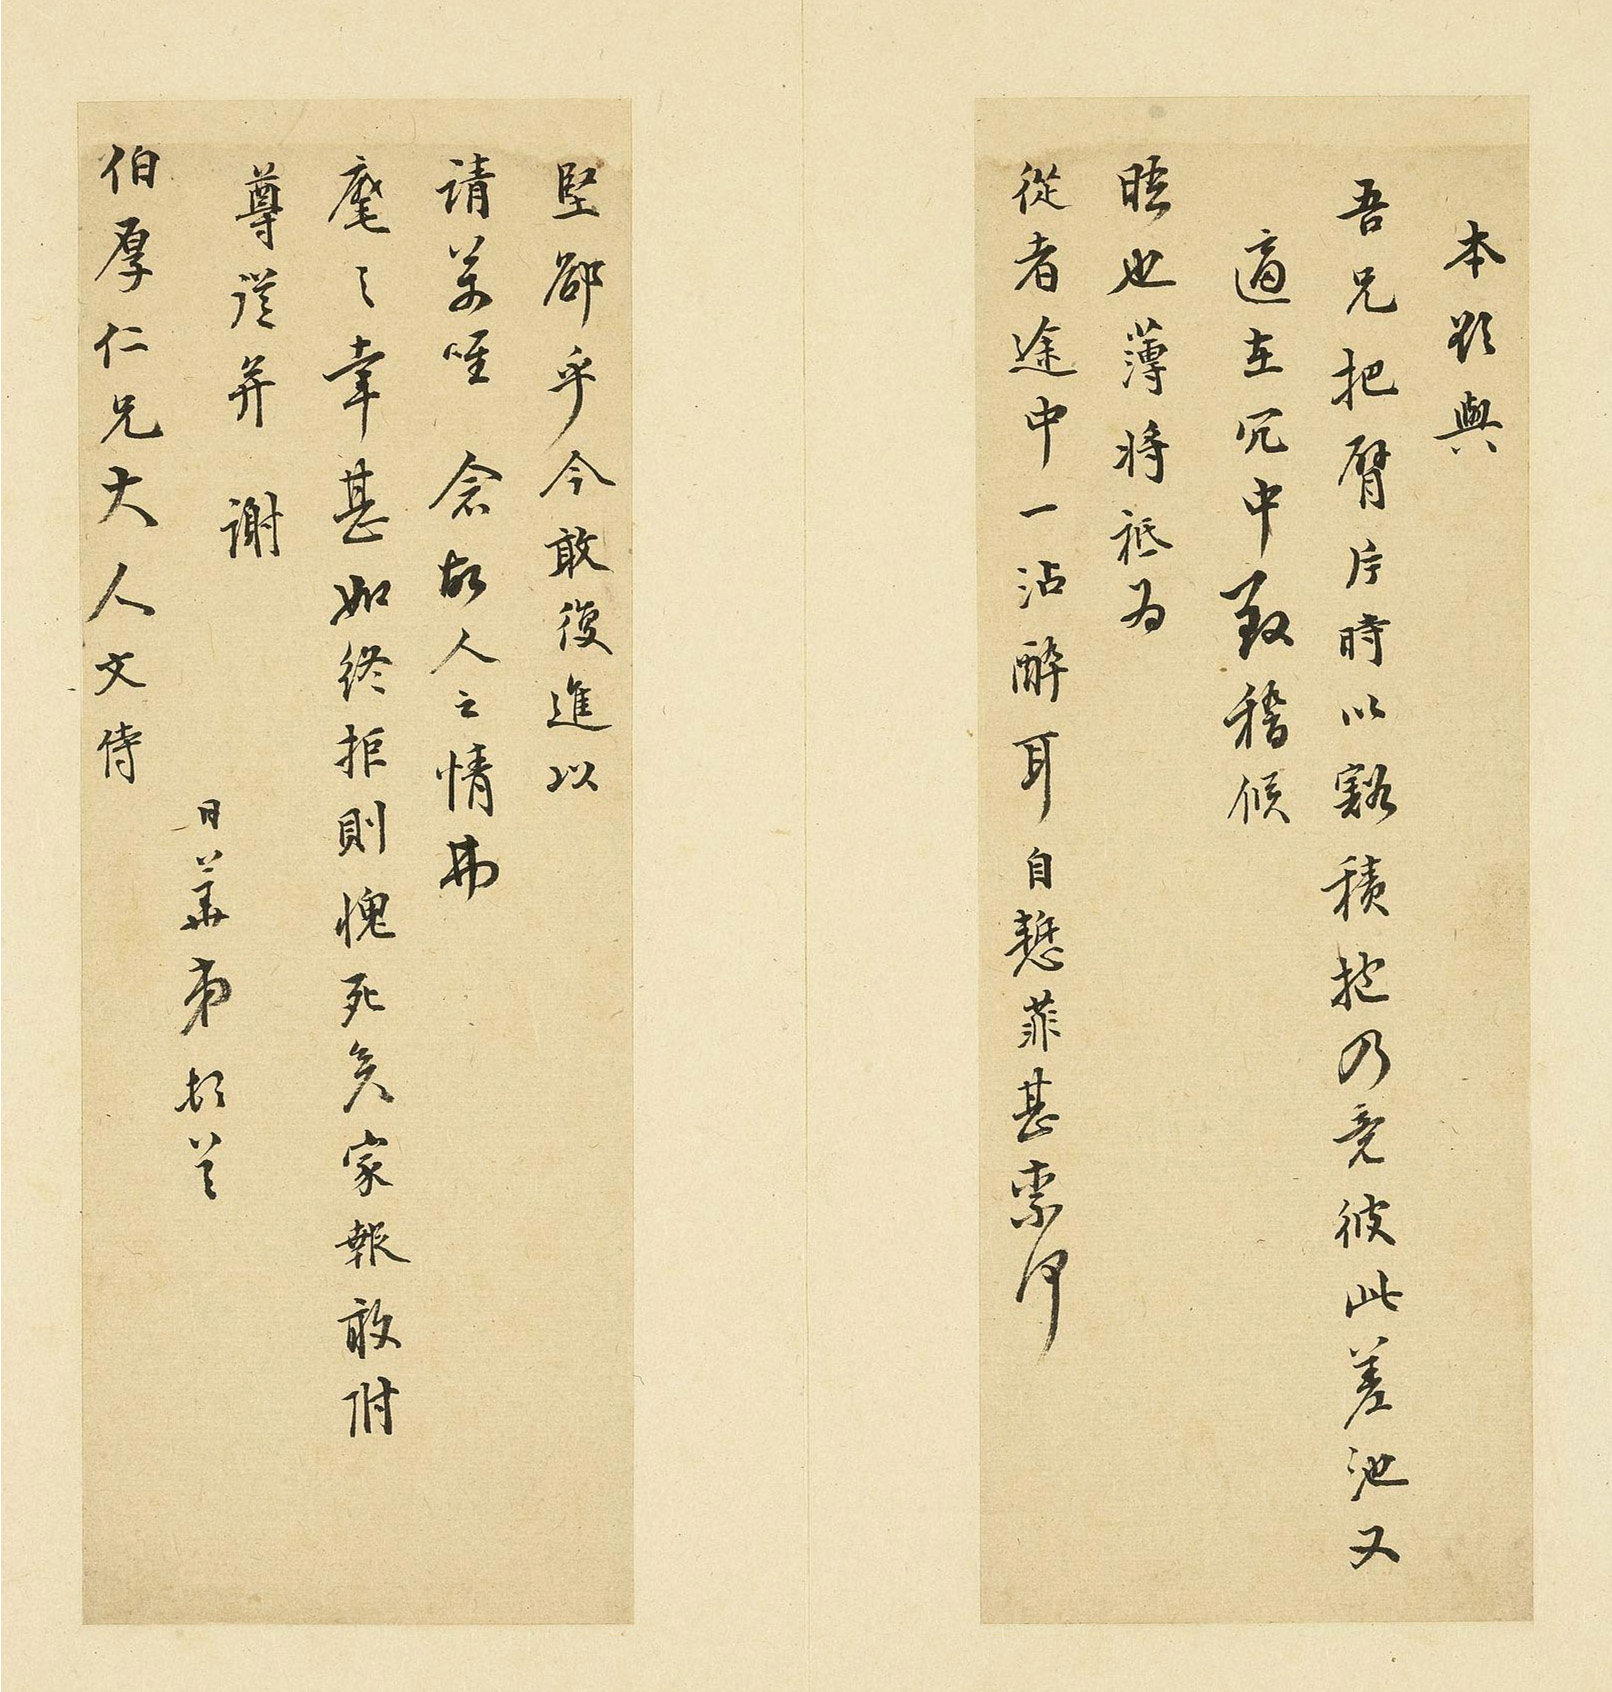 本欲與
吾兄把臂片時以豁積抱乃竟彼此差池又
適在冗中致稽候
晤也薄將祗為
從者途中一沾醉耳自慙菲甚來何
堅卻乎今敢復進以
請萬唯念故人之情弗
麾之幸甚如終拒則愧死矣家報敢附
尊從并謝
日華弟頓首
伯厚仁兄大人文侍